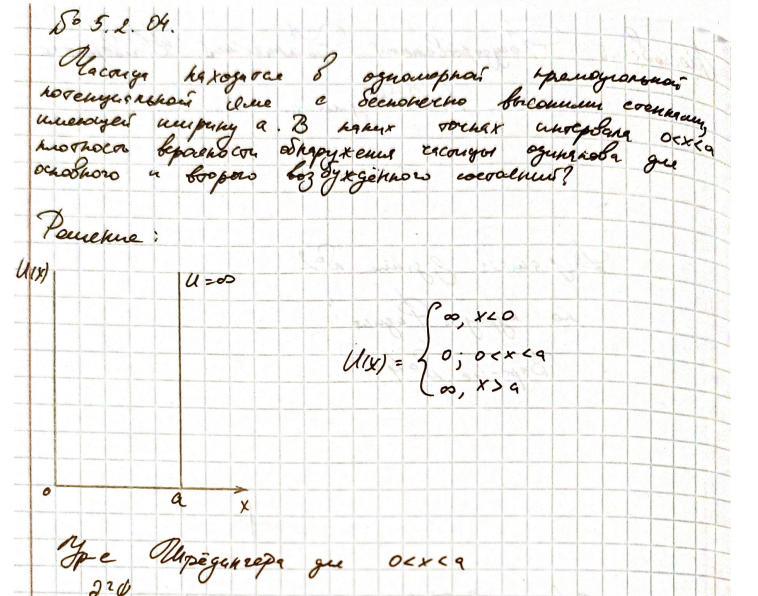 № 5.2.04.
Частица находится в одномерной прямоугольной
потенциальной яме с бесконечно высокими стенками,
имеющей ширину a. В каких точках интервала 0<x<a
плотность вероятности обнаружения частицы одинакова для
основного и второго возбуждённого состояний?
Решение:
U(x)
U=∞
U(x) = { ∞, x<0
0; 0<x<a
∞, x>a
0 a x
Ур-е Шрёдингера для 0<x<a
∂²ψ